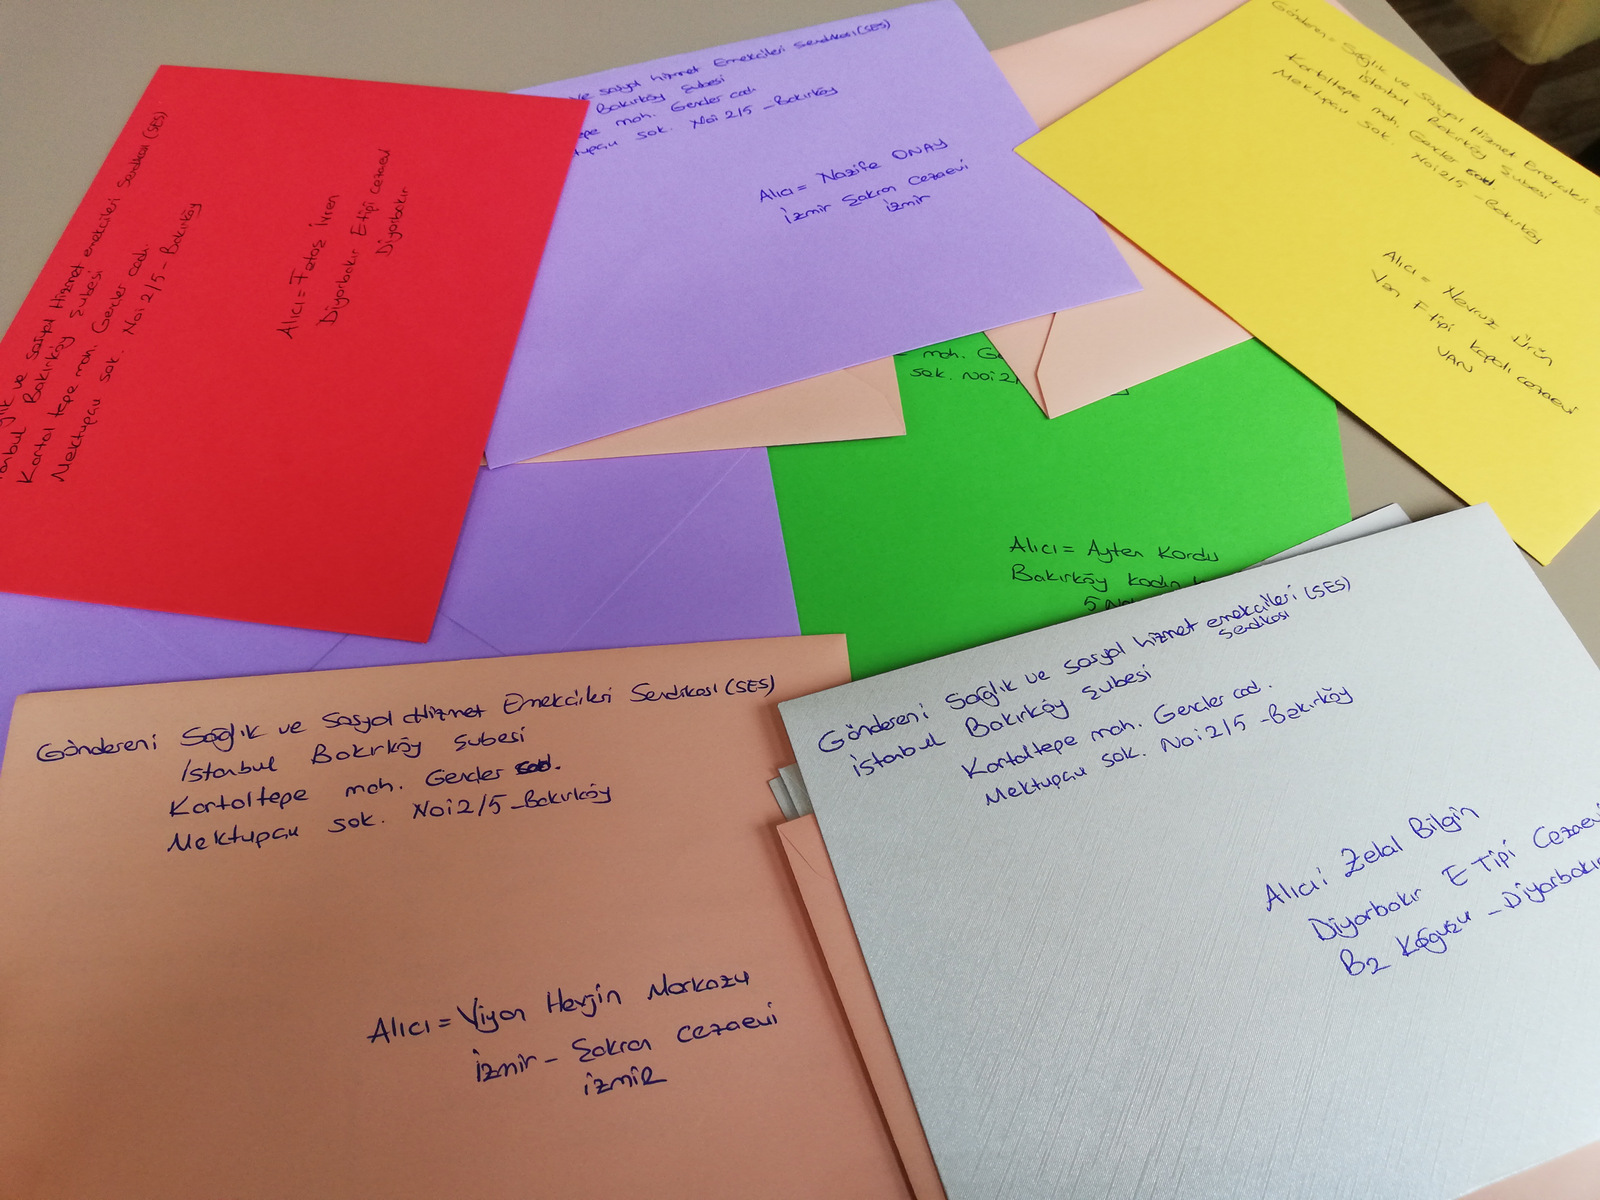 Sağlık ve Sosyal Hizmet emekcileri Sendikası (SES)
İstanbul Bakırköy Şubesi
Kartal tepe mah. Gencler cad.
Mektupcu sok. No: 2/5 - Bakırköy
Alıcı = Fatoş İvren
Diyarbakır E tipi cezaevi
Diyarbakır
ve sosyal hizmet Emekcileri Sendikası (SES)
Bakırköy Şubesi
mah. Gencler cad.
sok. No: 2/5 - Bakırköy
Alıcı = Nazife ONAY
İzmir Şakran Cezaevi
İzmir
Gönderen = Sağlık ve Sosyal Hizmet Emekcileri
İstanbul Bakırköy Şubesi
Kartaltepe mah. Gencler cad.
Mektupcu sok. No: 2/5 - Bakırköy
Alıcı = Nevruz Ürün
Van F tipi kapalı cezaevi
VAN
mah.
sok. No: 2/
Alıcı = Ayten Kordu
Bakırköy kadın
5 No
Gönderen: Sağlık ve Sosyal Hizmet Emekcileri Sendikası (SES)
İstanbul Bakırköy Şubesi
Kartaltepe mah. Gencler cad.
Mektupcu sok. No: 2/5 - Bakırköy
Alıcı = Viyan Hevjin Markozu
İzmir - Şakran Cezaevi
İZMİR
Gönderen: Sağlık ve Sosyal hizmet emekcileri (SES)
Sendikası
İstanbul Bakırköy Şubesi
Kartaltepe mah. Gencler cad.
Mektupcu sok. No: 2/5 - Bakırköy
Alıcı: Zelal Bilgin
Diyarbakır E Tipi Cezaevi
B2 Koğuşu - Diyarbakır